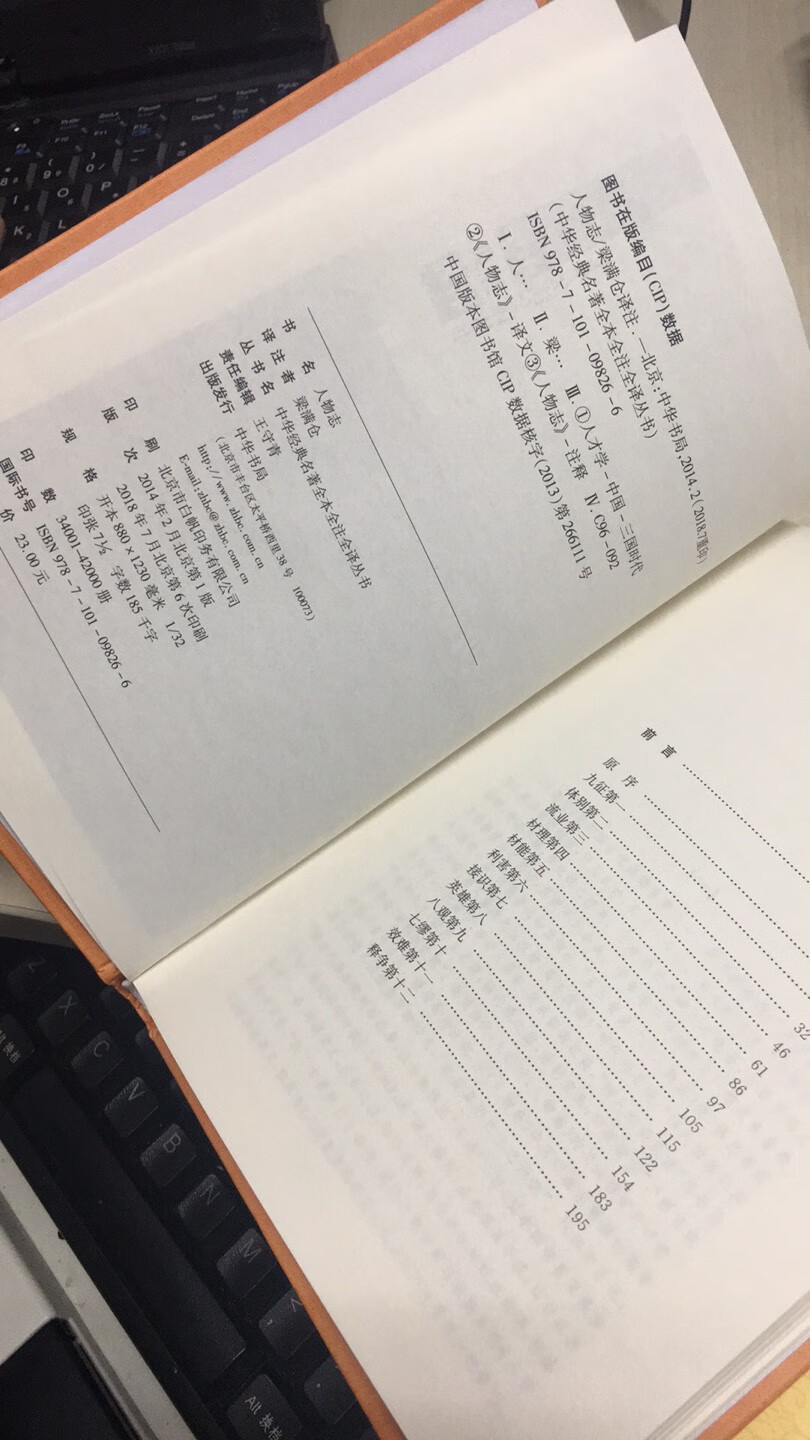 图书在版编目(CIP)数据
人物志/梁满仓译注.—北京:中华书局,2014.2(2018.7重印)
(中华经典名著全本全注全译丛书)
ISBN 978-7-101-09826-6
Ⅰ.人… Ⅱ.梁… Ⅲ.①人才学-中国-三国时代
②《人物志》-译文③《人物志》-注释 Ⅳ.C96-092
中国版本图书馆CIP数据核字(2013)第266111号
书名 人物志
译注者 梁满仓
丛书名 中华经典名著全本全注全译丛书
责任编辑 王守青
出版发行 中华书局
(北京市丰台区太平桥西里38号 100073)
http://www.zhbc.com.cn
E-mail:zhbc@zhbc.com.cn
印刷 北京市白帆印务有限公司
版次 2014年2月北京第1版
2018年7月北京第6次印刷
规格 开本880×1230毫米 1/32
印张7½ 字数185千字
印数 34001-42000册
国际书号 ISBN 978-7-101-09826-6
价 23.00元
前言
原序
九征第一
体别第二 32
流业第三 46
材理第四 61
材能第五 86
利害第六 97
接识第七 105
英雄第八 115
八观第九 122
七缪第十 154
效难第十一 183
释争第十二 195
Z
X
C
V
B
N
M
Alt 换档
换档
P
O
I
L
K